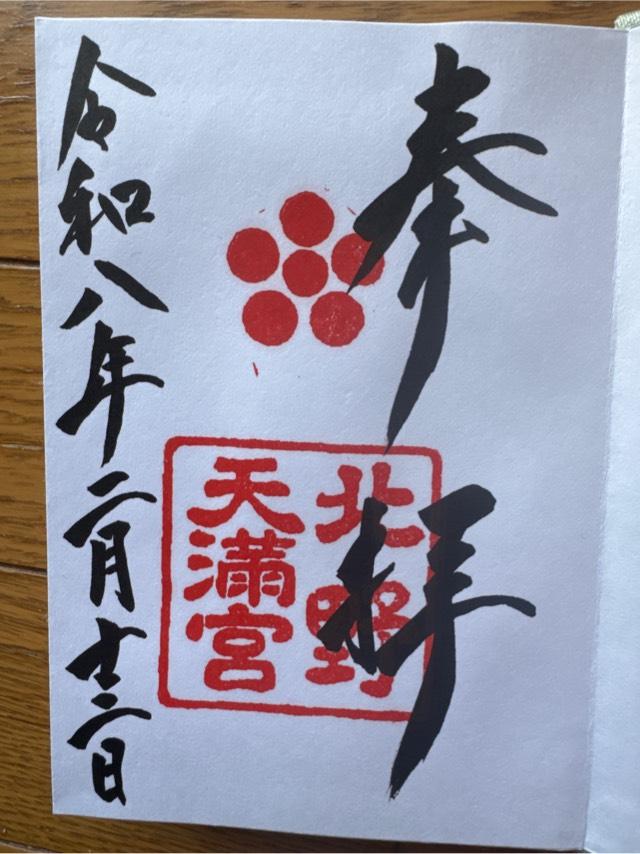 奉拝
北野
天満宮
令和八年二月十三日